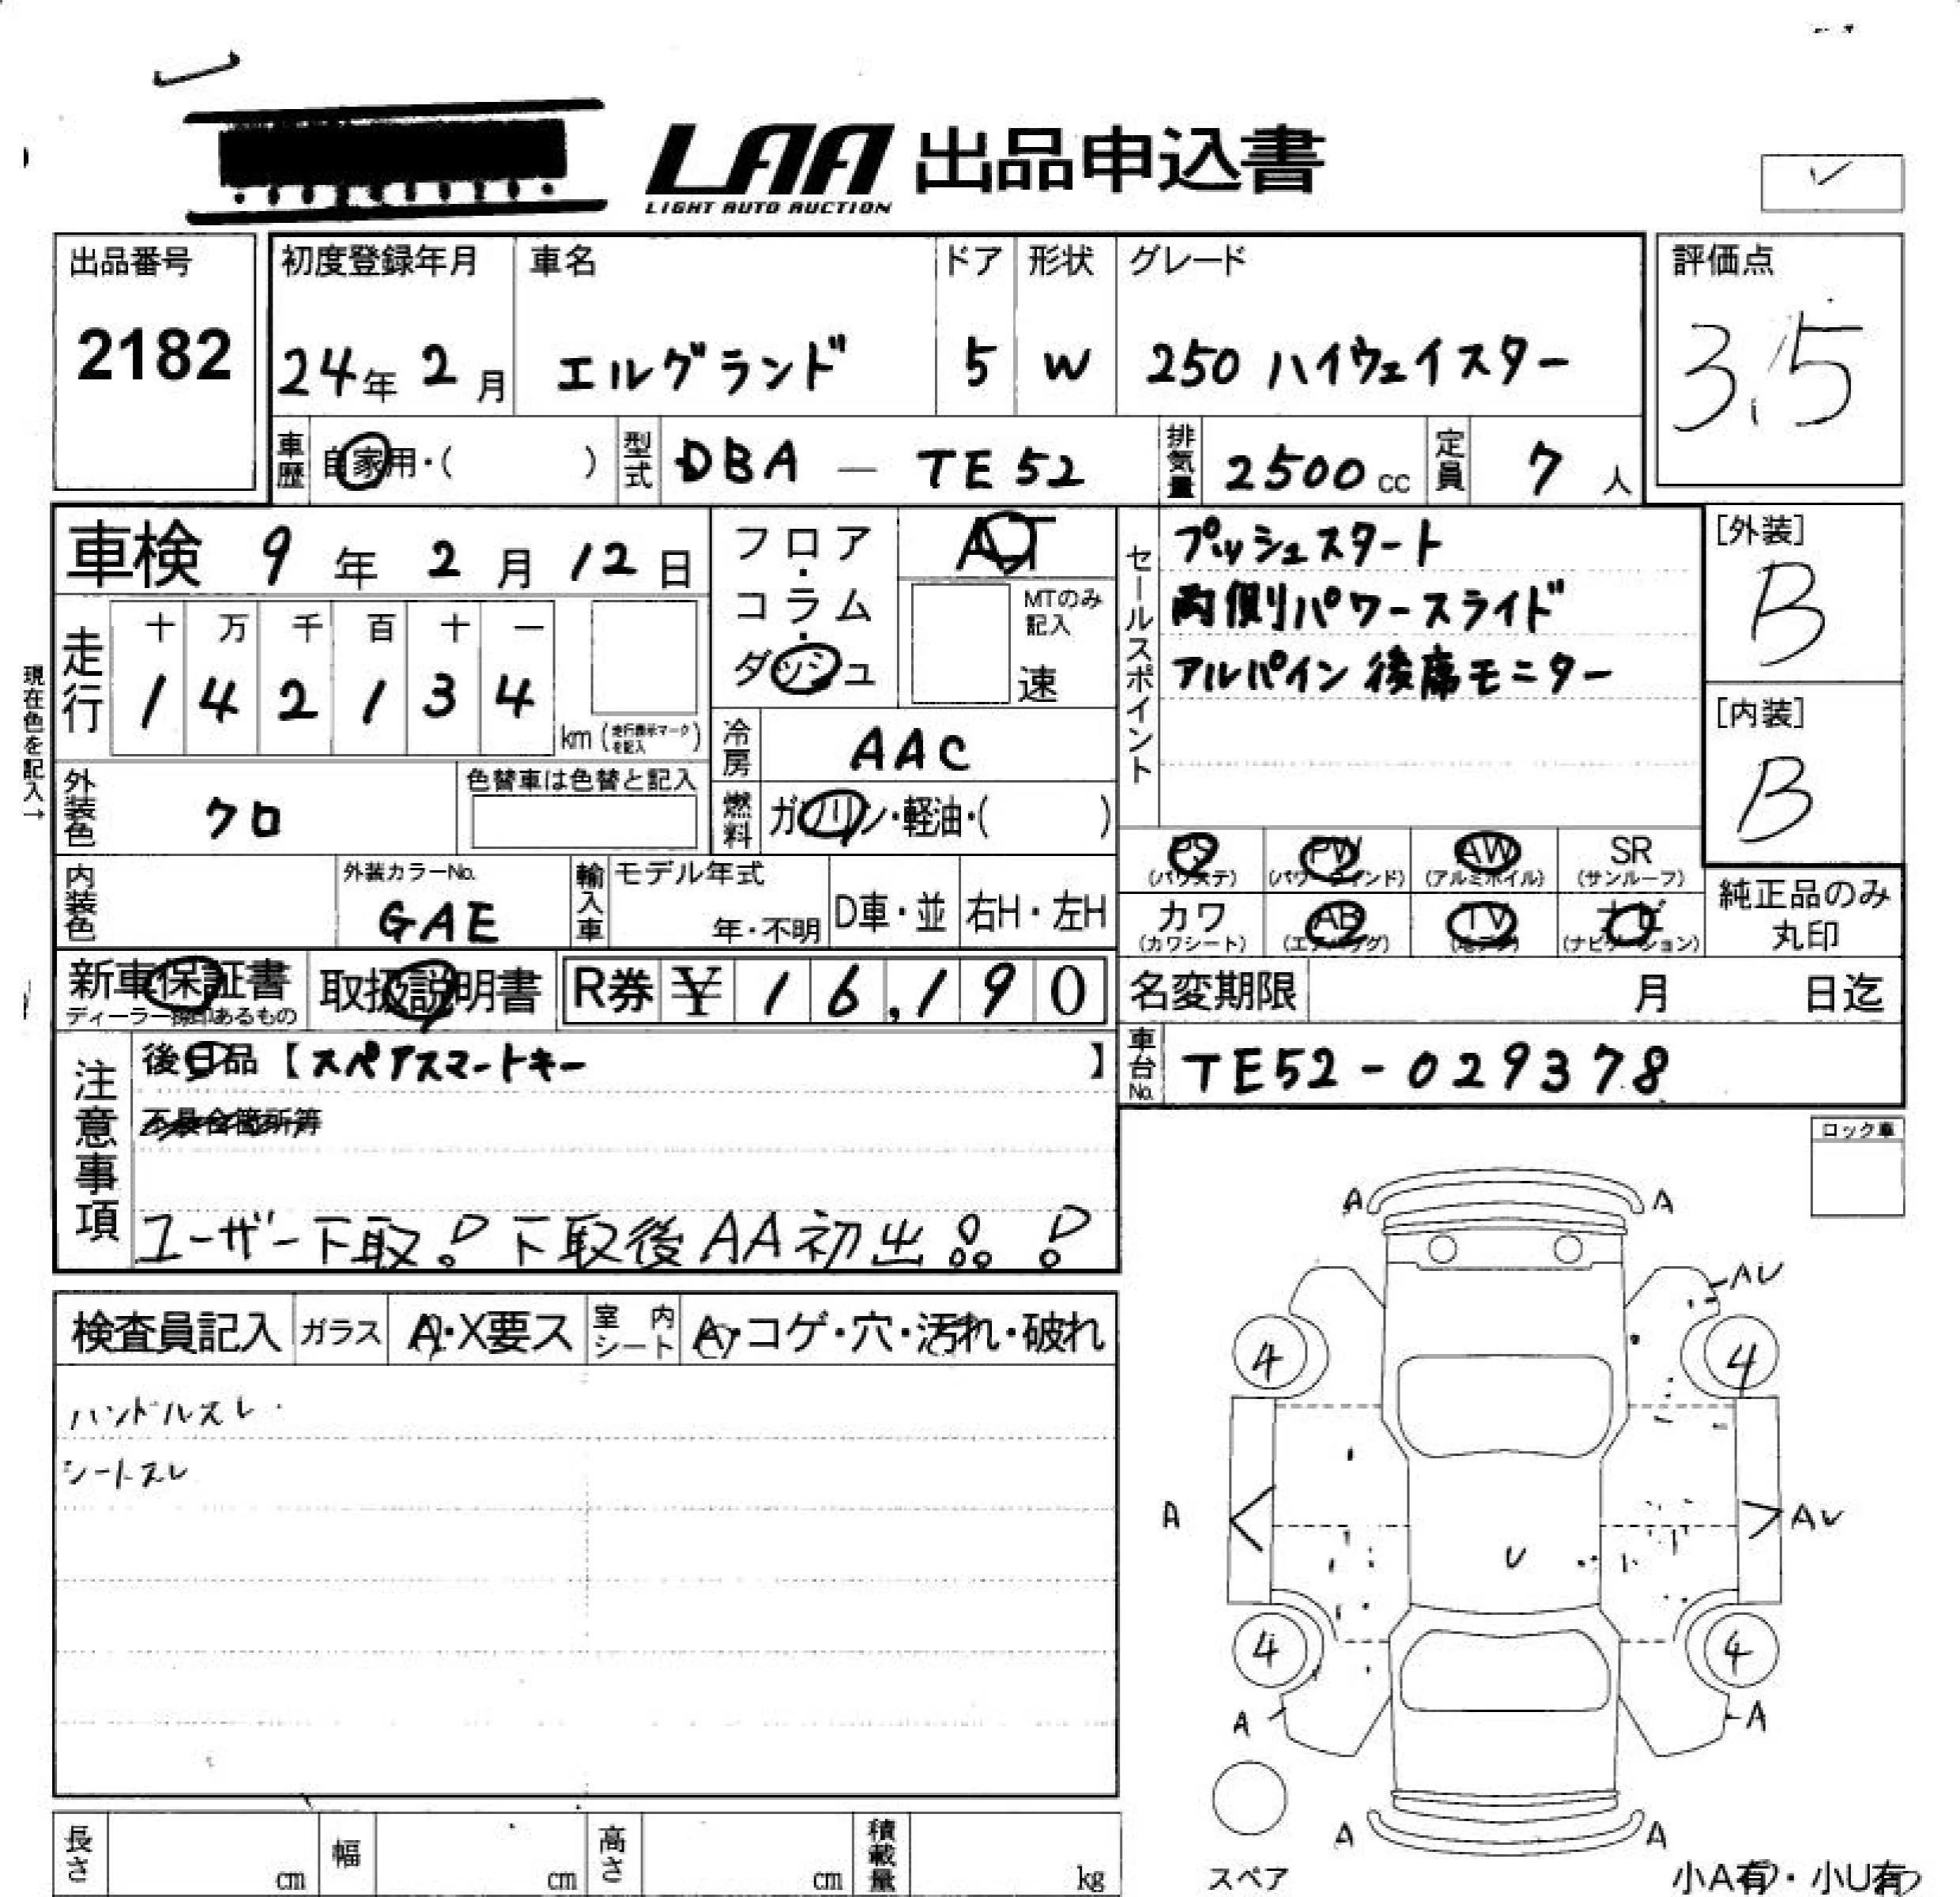 LAA 出品申込書
LIGHT AUTO AUCTION
出品番号
2182
初度登録年月
24年 2月
車名
エルグランド
ドア
5
形状
W
グレード
250 ハイウェイスター
評価点
3.5
車歴 自家用・( )
型式 DBA — TE52
排気量 2500 cc
定員 7 人
車検 9年 2月 12日
走行 十 万 千 百 十 一
1 4 2 1 3 4
km (走行表示マークを記入)
現在色を記入→
外装色 クロ
色替車は色替と記入
内装色
外装カラーNo.
GAE
フロア・コラム・ダッシュ
AT
MTのみ記入
速
冷房 AAC
燃料 ガソリン・軽油・( )
輸入車 モデル年式
年・不明
D車・並
右H・左H
セールスポイント
プッシュスタート
両側パワースライド
アルパイン 後席モニター
[外装]
B
[内装]
B
PS (パワステ)
PW (パワーウインド)
AW (アルミホイル)
SR (サンルーフ)
カワ (カワシート)
AB (エアバッグ)
TV (地デジ)
ナビ (ナビゲーション)
純正品のみ丸印
新車保証書
取扱説明書
R券 ¥ 16,190
名変期限 月 日迄
車台No. TE52-029378
注意事項
後日品【スペアスマートキー 】
不具合箇所等
ユーザー下取! 下取後AA初出!!
ロック車
検査員記入
ガラス A・X要ス
室内シート A・コゲ・穴・汚れ・破れ
ハンドルスレ
シートスレ
A A
AU
4 4
A AU
U
4 4
A A
A A
スペア
小A有・小U有
長さ cm
幅 cm
高さ cm
積載量 kg